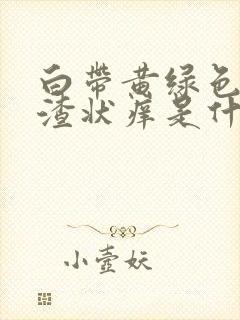 白带黄绿色
渣状痒是什
小壶妖